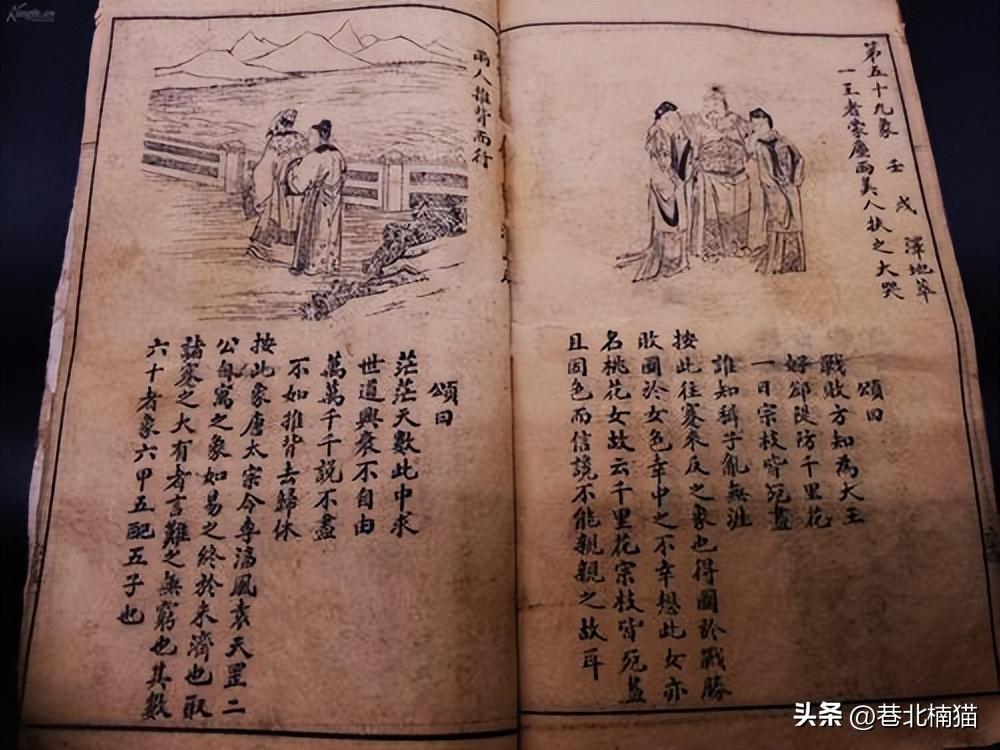 第五十九象 壬戌 澤地萃
一王者蒙塵兩美人扶之大哭
頌曰
戰敗方知為大王
好卻隄防千里花
一日宗枝皆死盡
誰知辮子亂無涯
按此往蹇來反之象也得國於戰勝
敗國於女色幸中之不幸想此女亦
名桃花女故云千里花宗枝皆死盡
且因色而信讒不能親親之故耳
兩人推背而行
頌曰
茫茫天數此中求
世道興衰不自由
萬萬千千說不盡
不如推背去歸休
按此象唐太宗令李淳風袁天罡二
公自寓之象如易之終於未濟也取
諸蹇之大有者言難之無窮也其數
六十者象六甲五配五子也
头条 @巷北楠猫